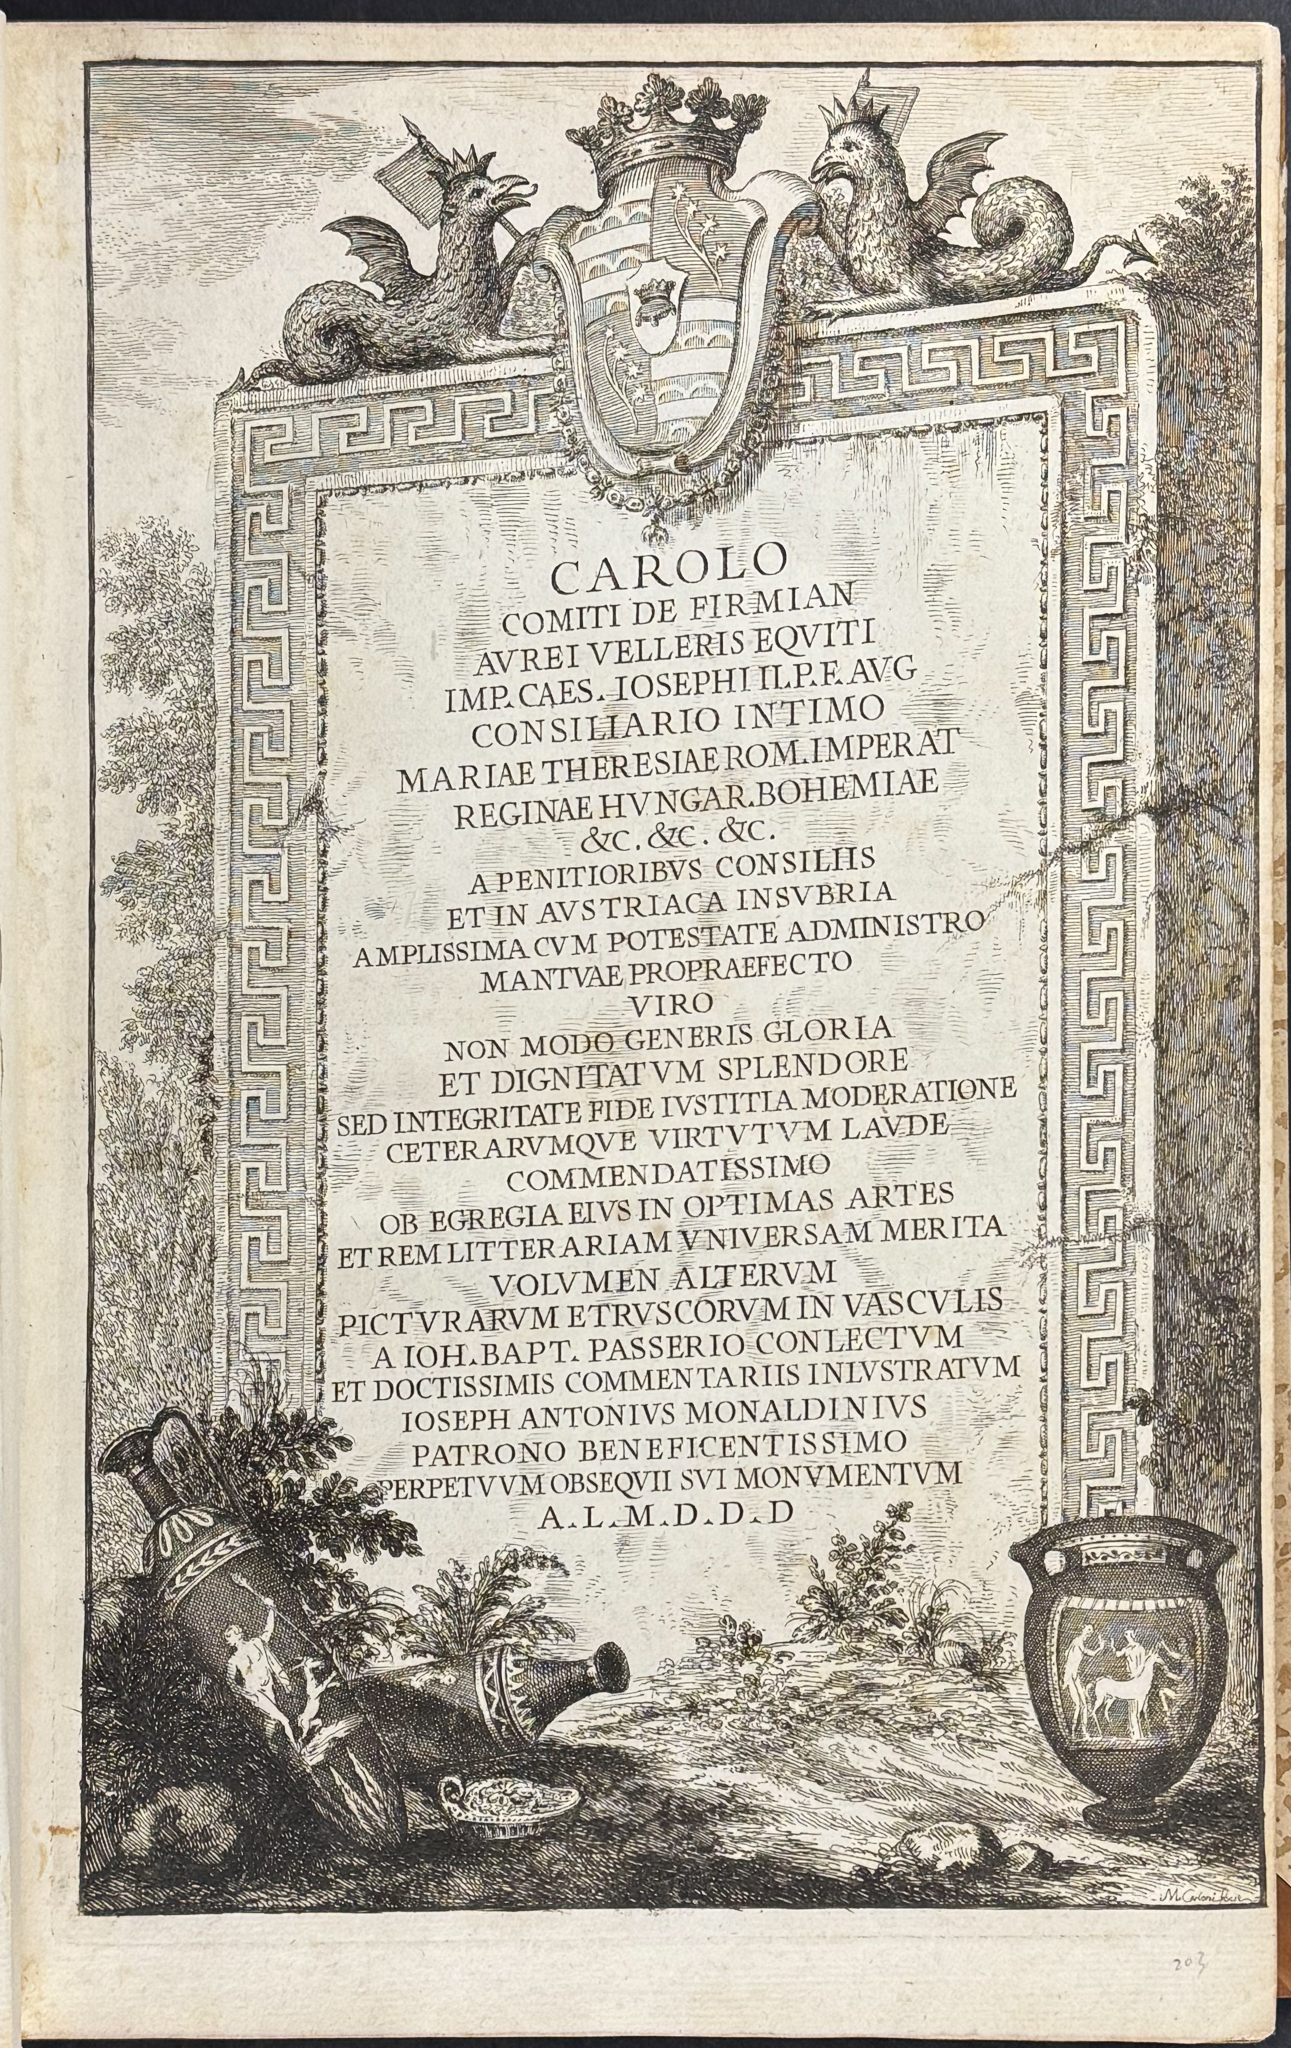 CAROLO
COMITI DE FIRMIAN
AVREI VELLERIS EQVITI
IMP. CAES. IOSEPHI II. P. F. AVG
CONSILIARIO INTIMO
MARIAE THERESIAE ROM. IMPERAT
REGINAE HVNGAR. BOHEMIAE
&C. &C. &C.
A PENITIORIBVS CONSILIIS
ET IN AVSTRIACA INSVBRIA
AMPLISSIMA CVM POTESTATE ADMINISTRO
MANTVAE PROPRAEFECTO
VIRO
NON MODO GENERIS GLORIA
ET DIGNITATVM SPLENDORE
SED INTEGRITATE FIDE IVSTITIA MODERATIONE
CETERARVMQVE VIRTVTVM LAVDE
COMMENDATISSIMO
OB EGREGIA EIVS IN OPTIMAS ARTES
ET REM LITTERARIAM VNIVERSAM MERITA
VOLVMEN ALTERVM
PICTVRARVM ETRVSCORVM IN VASCVLIS
A IOH. BAPT. PASSERIO CONLECTVM
ET DOCTISSIMIS COMMENTARIIS INLVSTRATVM
IOSEPH ANTONIVS MONALDINIVS
PATRONO BENEFICENTISSIMO
PERPETVVM OBSEQVII SVI MONVMENTVM
A. L. M. D. D. D
M Carloni
203